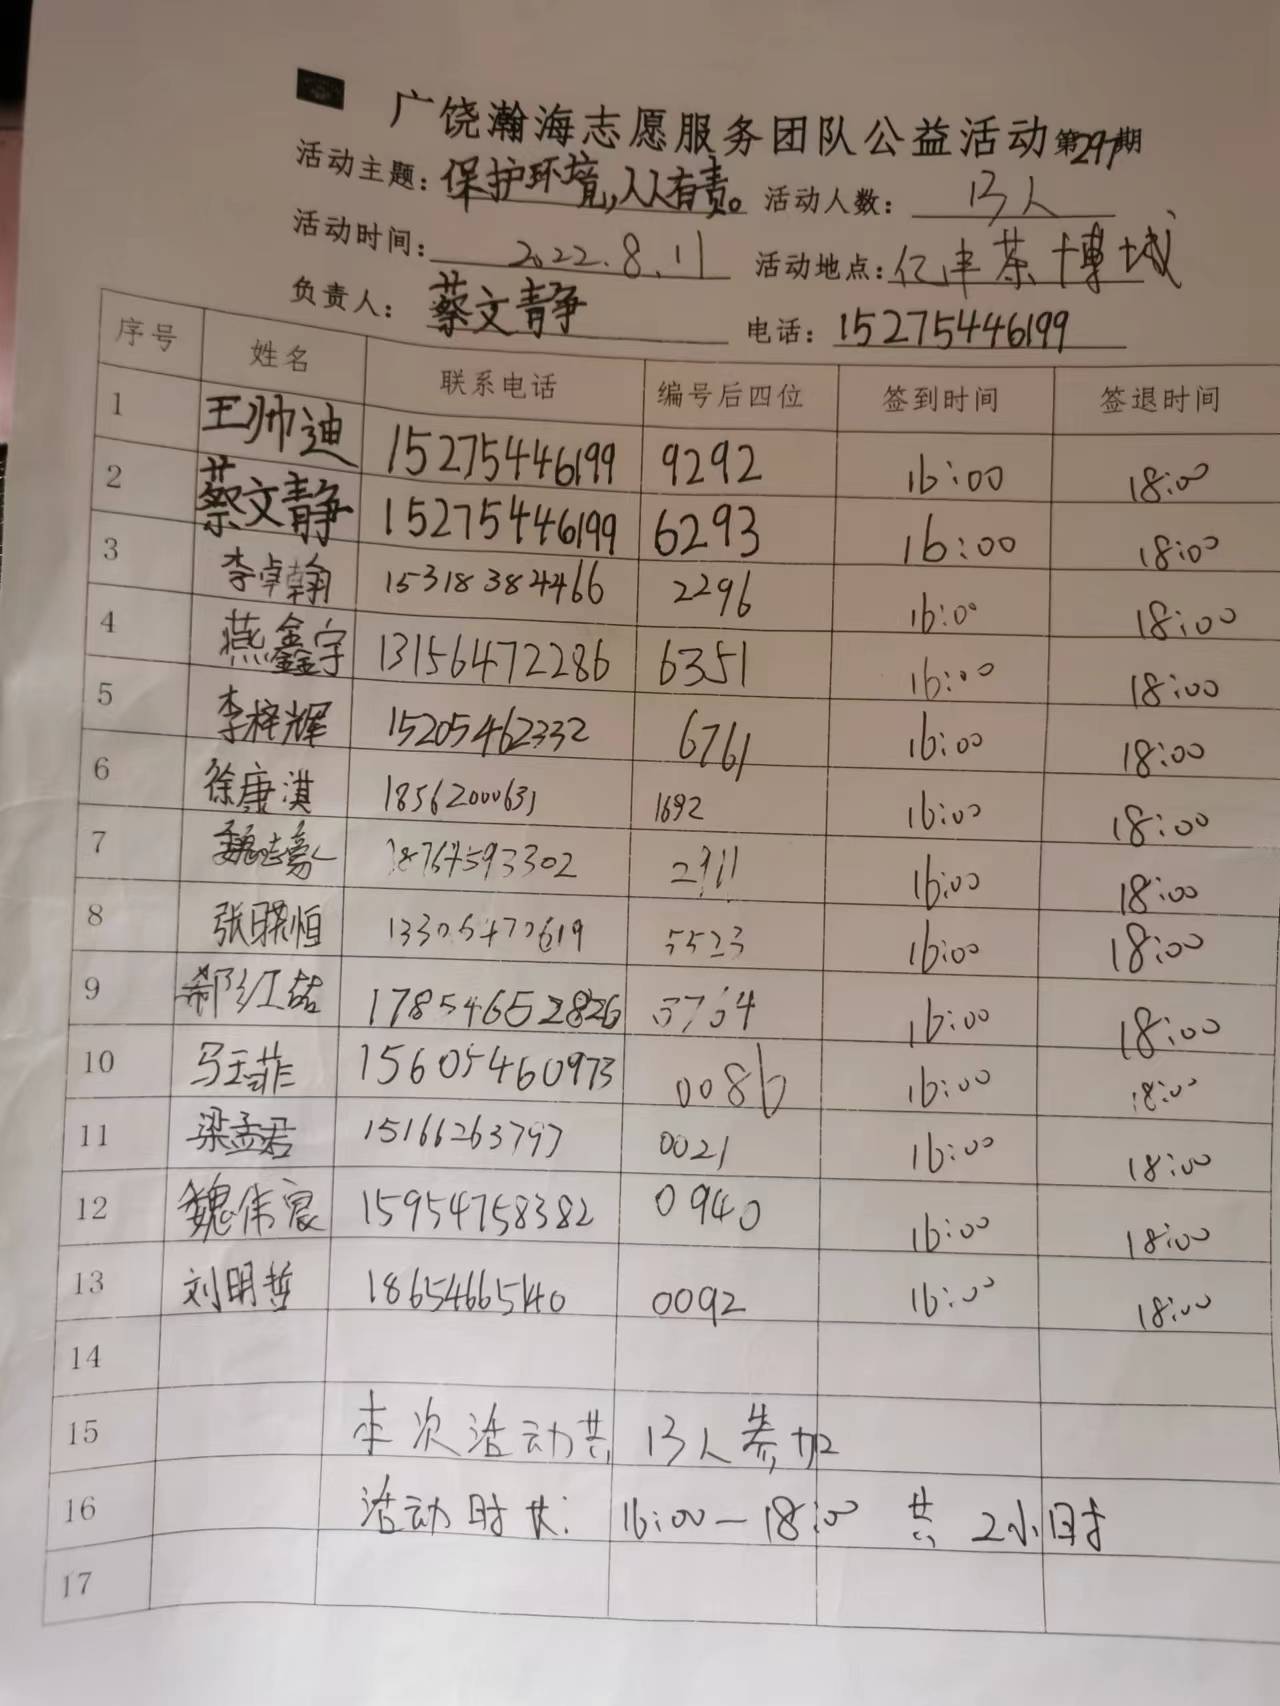 广饶瀚海志愿服务团队公益活动第297期
活动主题：保护环境,人人有责。 活动人数：13人
活动时间：2022.8.11 活动地点：亿丰茶博城
负责人：蔡文静 电话：15275446199
序号 姓名 联系电话 编号后四位 签到时间 签退时间
1 王帅迪 15275446199 9292 16:00 18:00
2 蔡文静 15275446199 6293 16:00 18:00
3 李卓翰 15318384466 2296 16:00 18:00
4 燕鑫宇 13156472286 6351 16:00 18:00
5 李梓辉 15205462332 6761 16:00 18:00
6 徐康淇 18562000631 1692 16:00 18:00
7 18764593302 2911 16:00 18:00
8 张曦恒 13305470619 5523 16:00 18:00
9 17854652826 16:00 18:00
10 马玉菲 15605460973 0086 16:00 18:00
11 梁孟君 15166263797 0021 16:00 18:00
12 魏伟宸 15954758382 0940 16:00 18:00
13 刘明哲 18654665140 0092 16:00 18:00
14
15 本次活动共13人参加
16 活动时长：16:00—18:00 共2小时
17